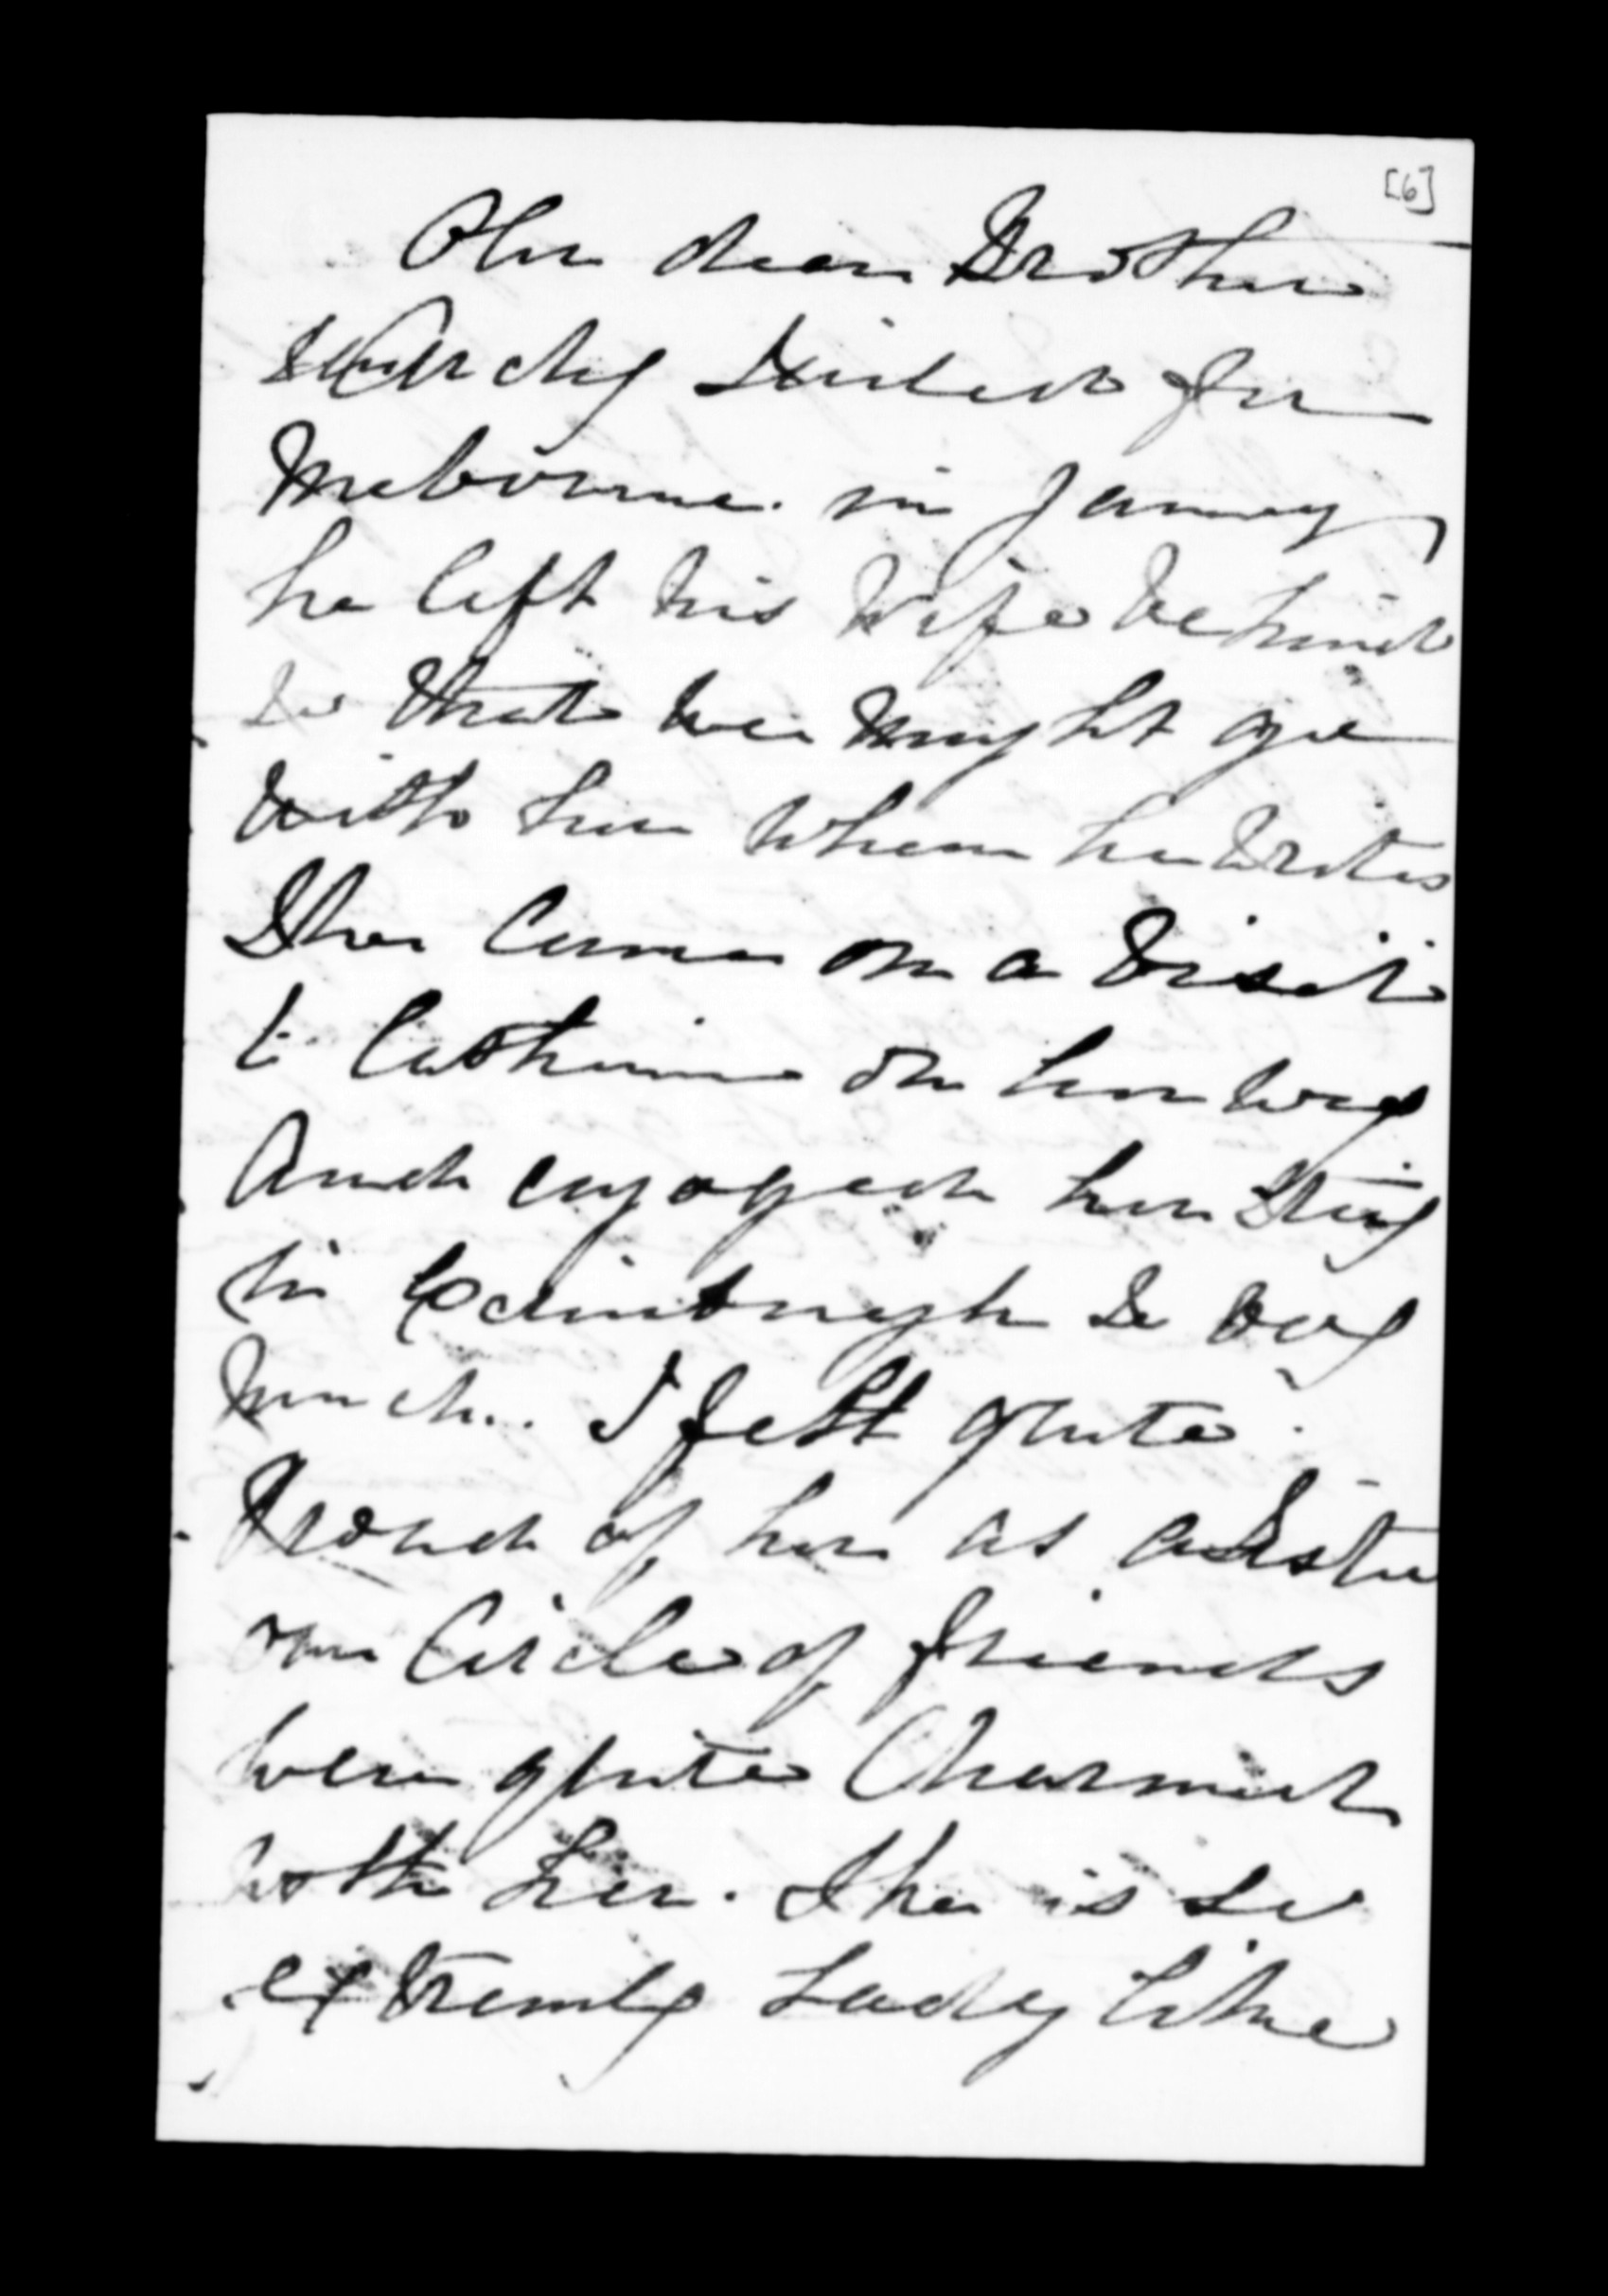 [6]
Our dear Brother
Archy Sailed for
Melbourne. in Janry,
he left his Wife behind
so that we might go
with her when he writes
She Came on a Visit
to Catherine on her way
And enjoyed her Stay
in Edinburgh so very
much.. I felt quite
Proud of her as a Sister
our Circle of friends
were quite Charmed
with her. She is so
extremly Lady like